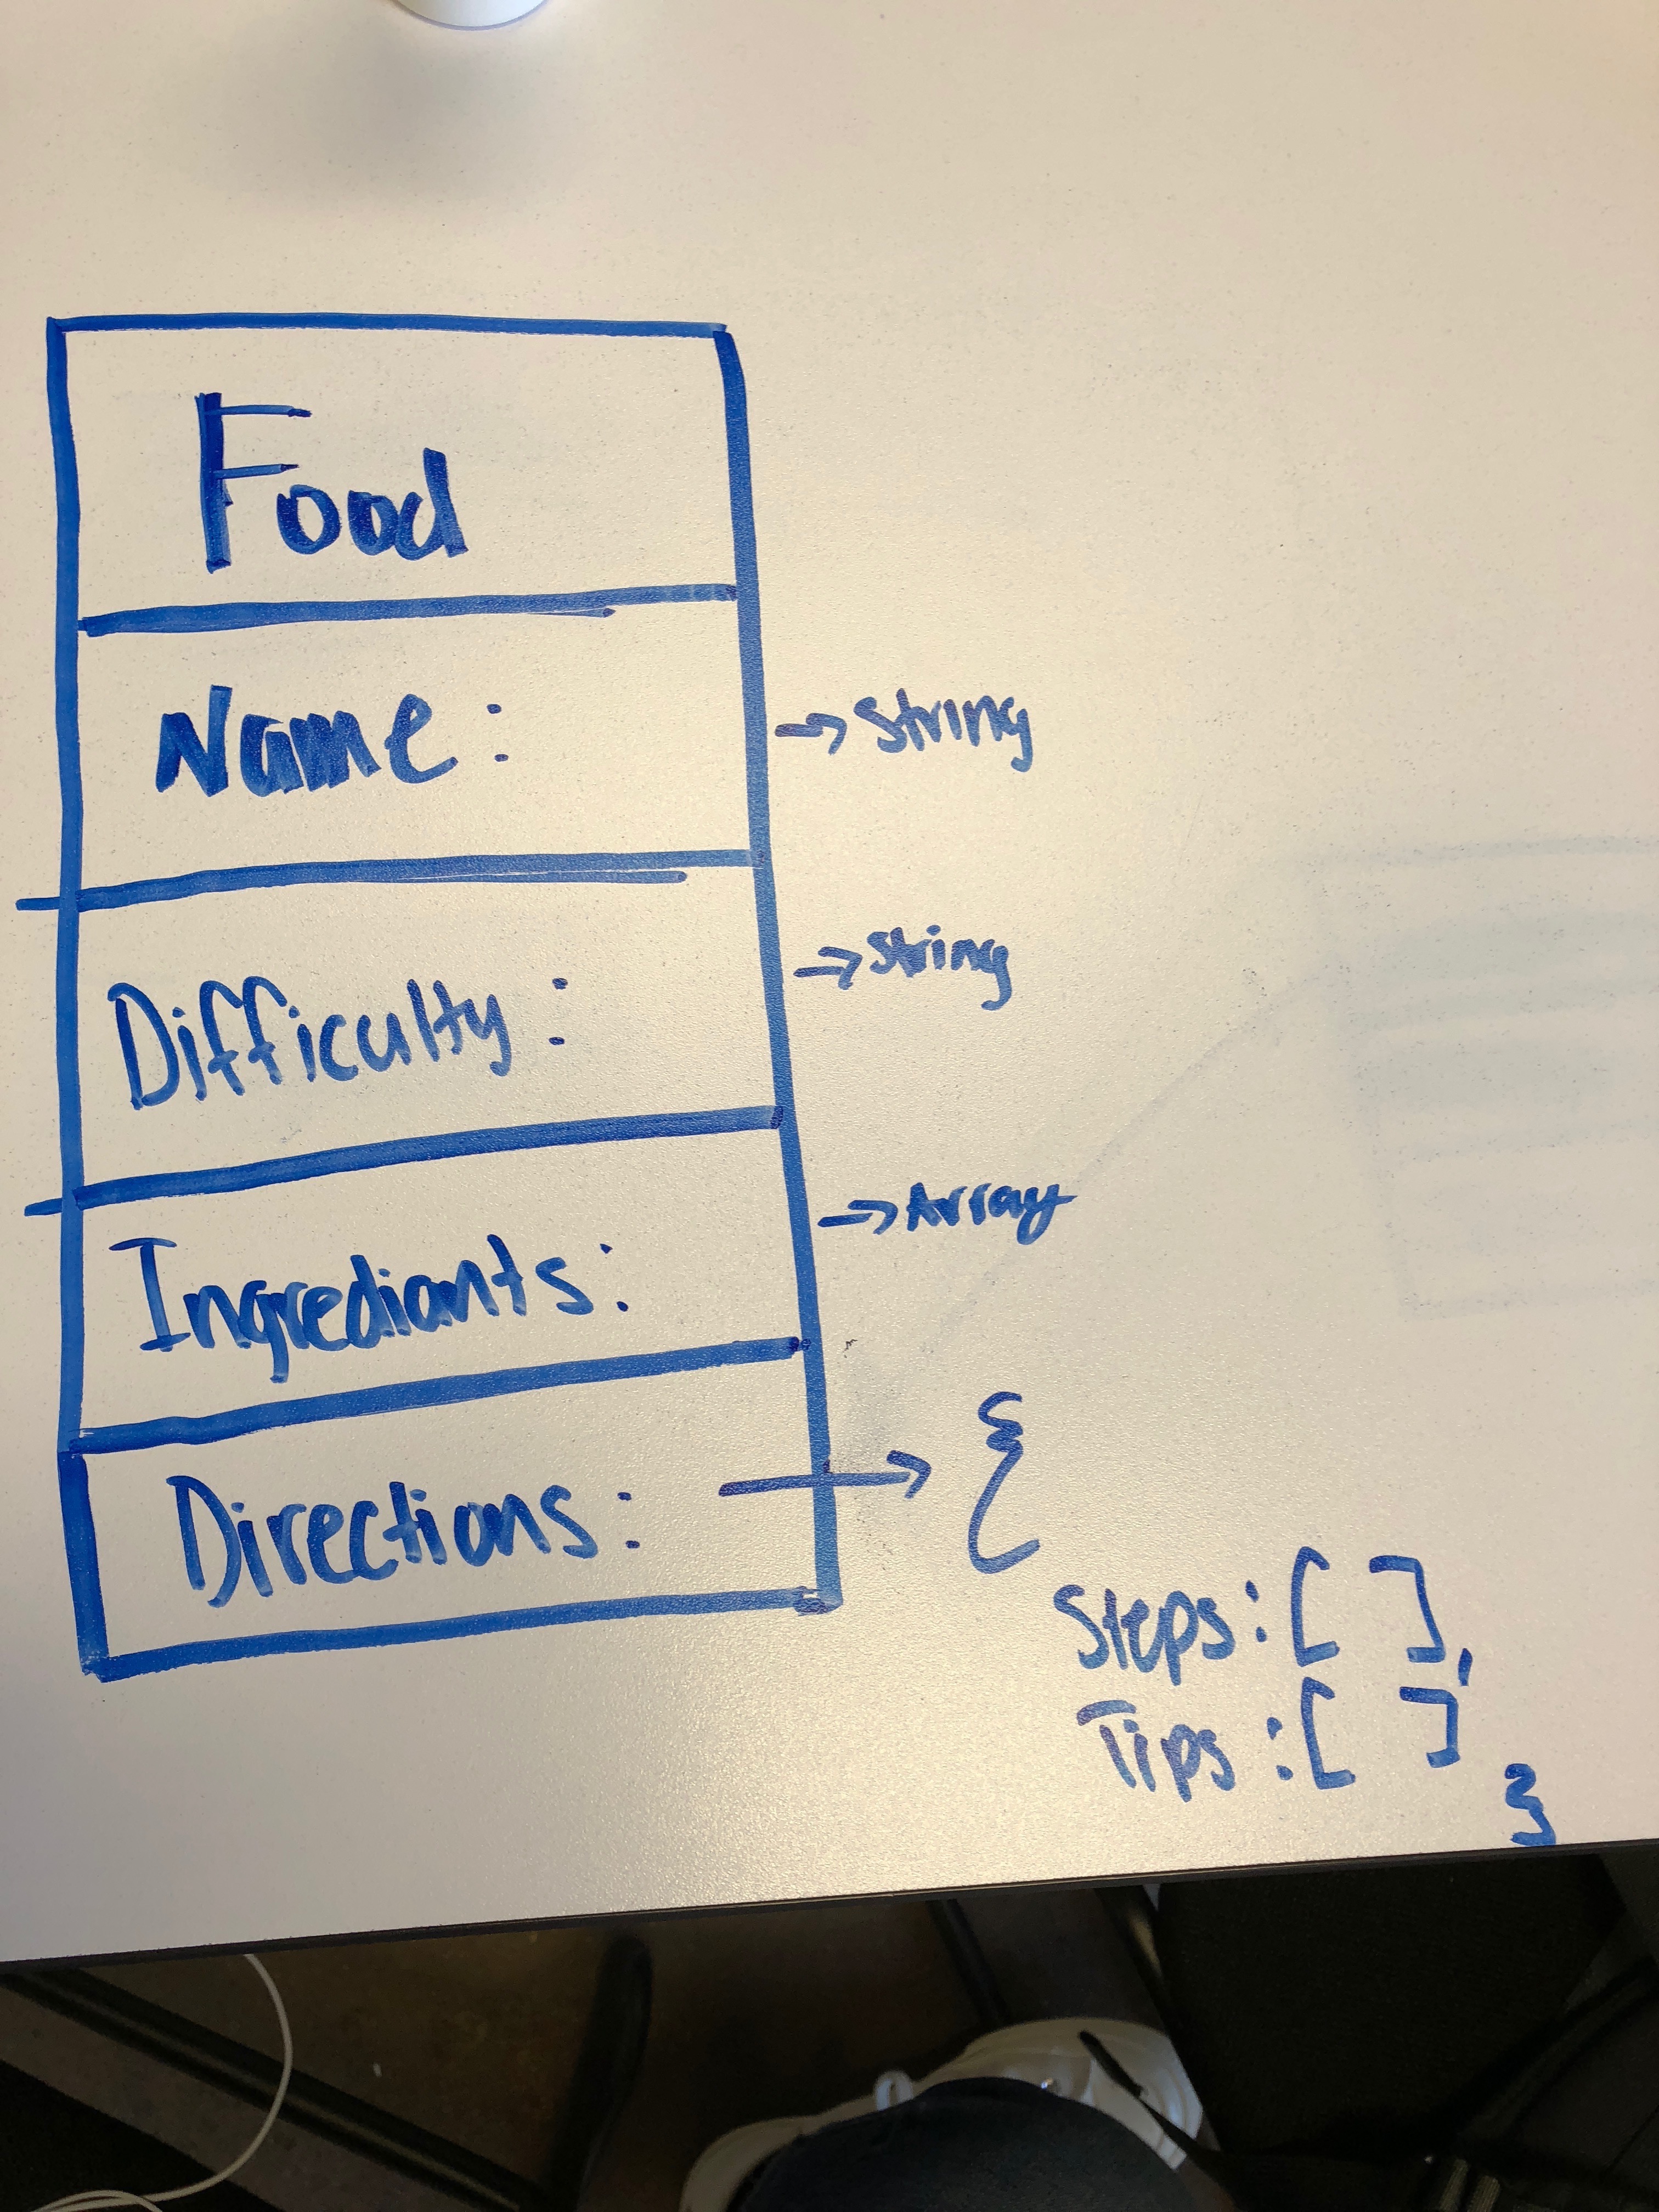 Food
Name: → String
Difficulty: → String
Ingrediants: → Array
Directions: → {
Steps: [ ],
Tips: [ ]
}